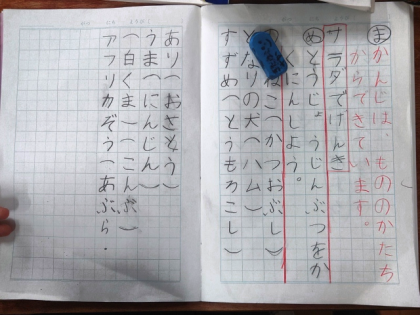 まかんじは、もののかたち
からできています。
サラダでげんき
めとうじょうじんぶつをか
くにんしよう。
ねこ(かつおぶし)
となりの犬(ハム)
すずめ(とうもろこし)
あり(おさとう)
うま(にんじん)
(白くま(こんぶ)
アフリカぞう(あぶら・